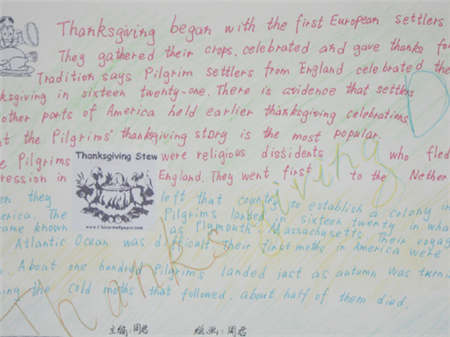 Thanksgiving began with the first European settlers
They gathered their crops, celebrated and gave thanks for
Tradition says Pilgrim settlers from England celebrated the
ksgiving in sixteen twenty-one. There is evidence that settlers
other parts of America held earlier thanksgiving celebrations
t the Pilgrims' thanksgiving story is the most popular.
e Pilgrims were religious dissidents who fled
ression in England. They went first to the Nether
Thanksgiving Stew
on they left that country to establish a colony in
erica. The Pilgrims landed in sixteen twenty in what
came known as Plymouth Massachusetts. Their voyage
Atlantic Ocean was difficult. Their first moths in America were
About one hundred Pilgrims landed just as autumn was turni
ing the cold moths that followed, about half of them died.
Thanksgiving
主编:周君
周君